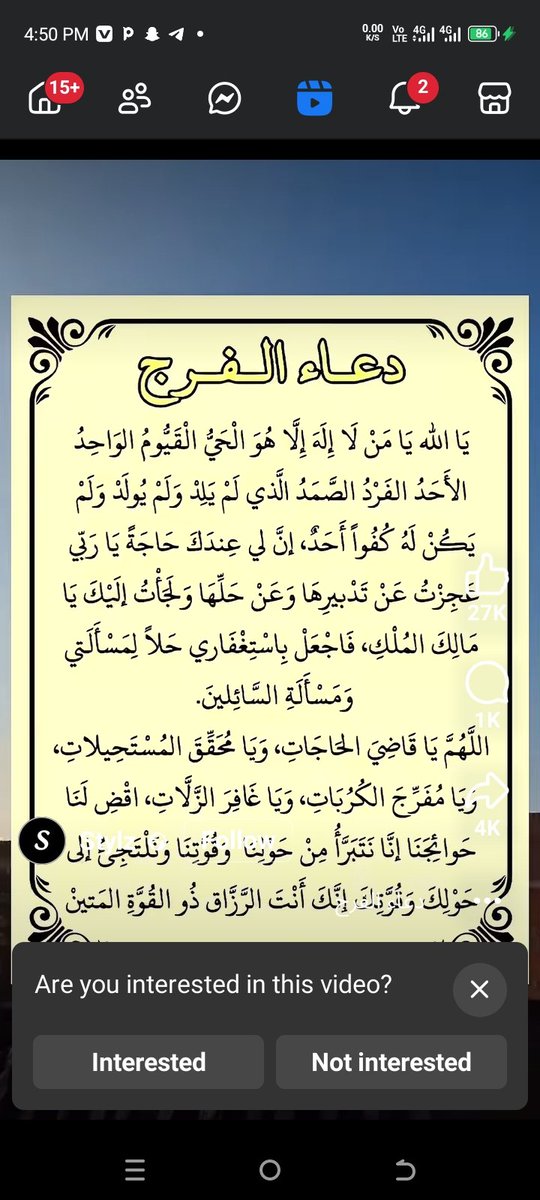 4:50 PM
0.00 K/S Vo LTE 4G 4G 86
15+
2
دعاء الفرج
يَا الله يَا مَنْ لَا إِلَهَ إِلَّا هُوَ الْحَيُّ الْقَيُّومُ الوَاحِدُ
الأَحَدُ الفَرْدُ الصَّمَدُ الَّذي لَمْ يَلِدْ وَلَمْ يُولَدْ وَلَمْ
يَكُنْ لَهُ كُفُواً أَحَدٌ، إنَّ لي عِندَكَ حَاجَةً يَا رَبّي
عَجِزْتُ عَنْ تَدْبيرِهَا وَعَنْ حَلِّهَا وَلَجَأْتُ إلَيْكَ يَا
27K
مَالِكَ المُلْكِ، فَاجْعَلْ بِاسْتِغْفَاري حَلاً لِمَسْأَلَتي
وَمَسْأَلَةِ السَّائِلينَ.
1K
اللَّهُمَّ يَا قَاضِيَ الحَاجَاتِ، وَيَا مُحَقِّقَ المُسْتَحِيلاتِ،
وَيَا مُفَرِّجَ الكُرُبَاتِ، وَيَا غَافِرَ الزَّلَّاتِ، اقْضِ لَنَا
4K
S
Follow
حَوائِجَنَا إنَّا نَتَبَرَّأُ مِنْ حَولِنَا وَقُوَّتِنَا وَنَلْتَجِئُ إلى
حَوْلِكَ وَقُوَّتِكَ إنَّكَ أَنْتَ الرَّزَّاق ذُو القُوَّةِ المَتينْ
Are you interested in this video?
Interested
Not interested